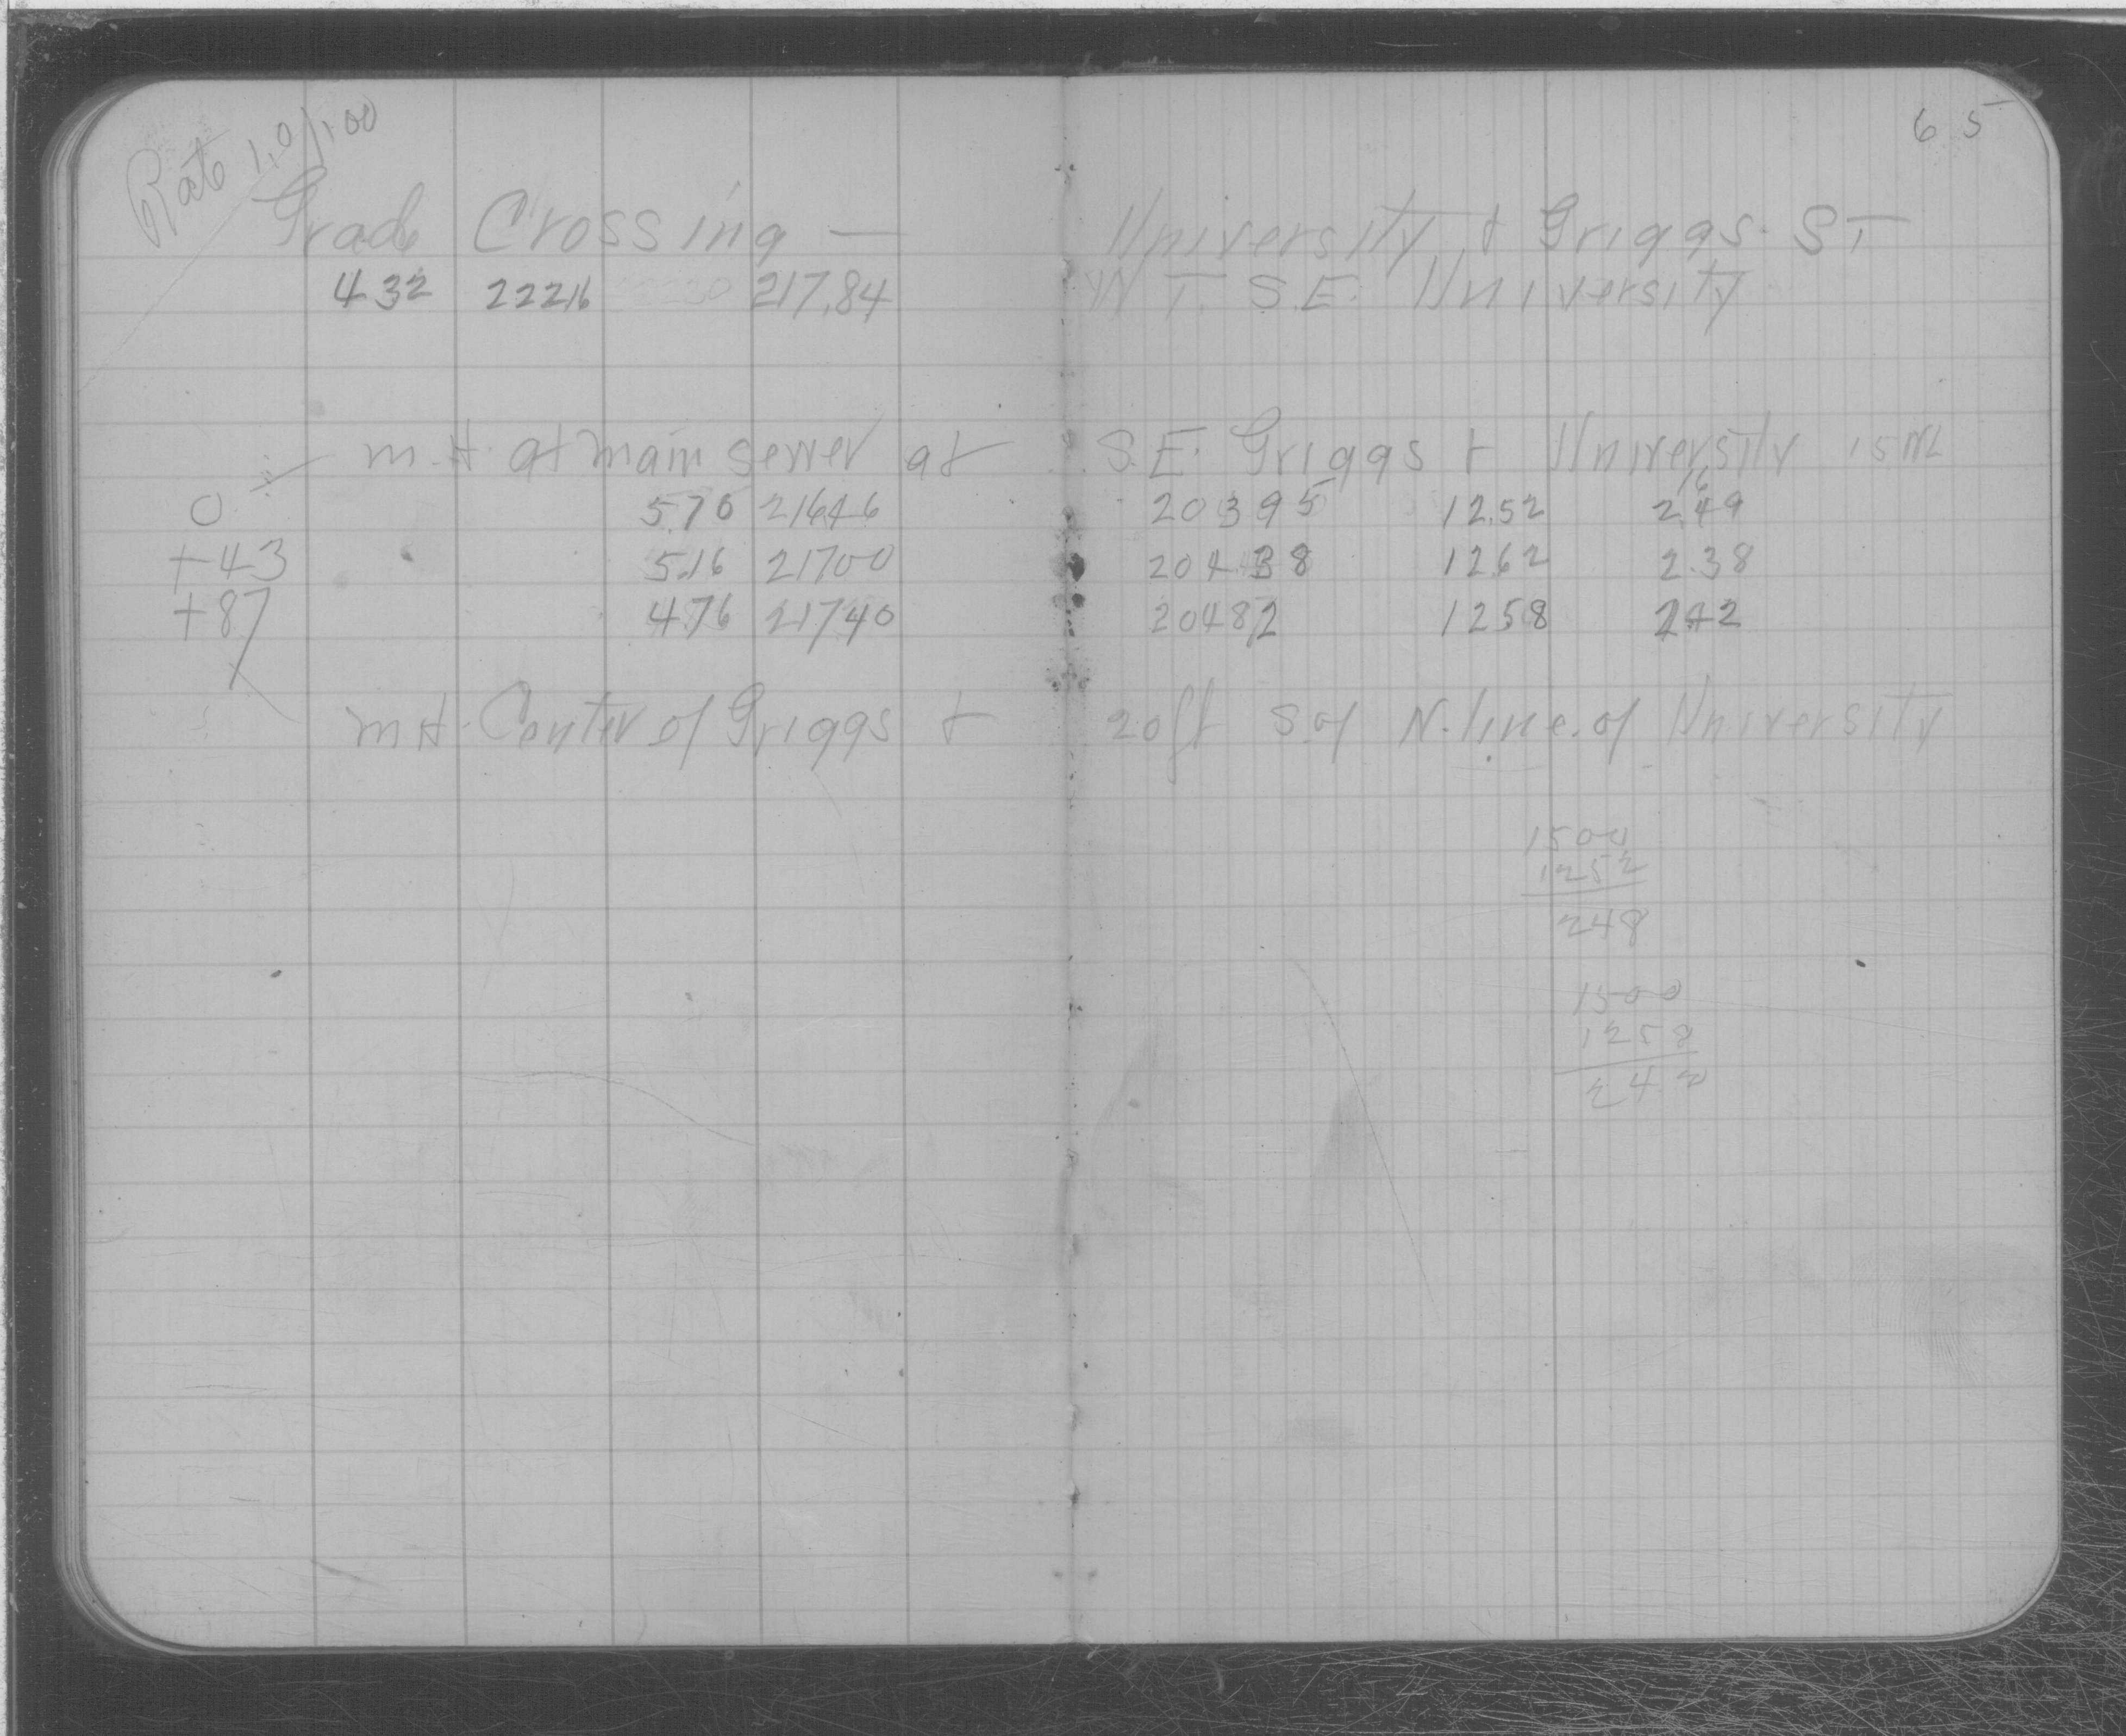 65
Rate 1.0/100
Grade Crossing — University & Griggs ST
432 22216 217.84 W T. S.E. University
M.H. at main sewer at S.E. Griggs & University 15 
16
0 5.70 21646 20395 12.52 249
+43 5.16 21700 20438 1262 2.38
+87 4.76 21740 20482 1258 242
M H. Center of Griggs & 20 ft S of N. line of University
1500
1252
248
1500
1258
242